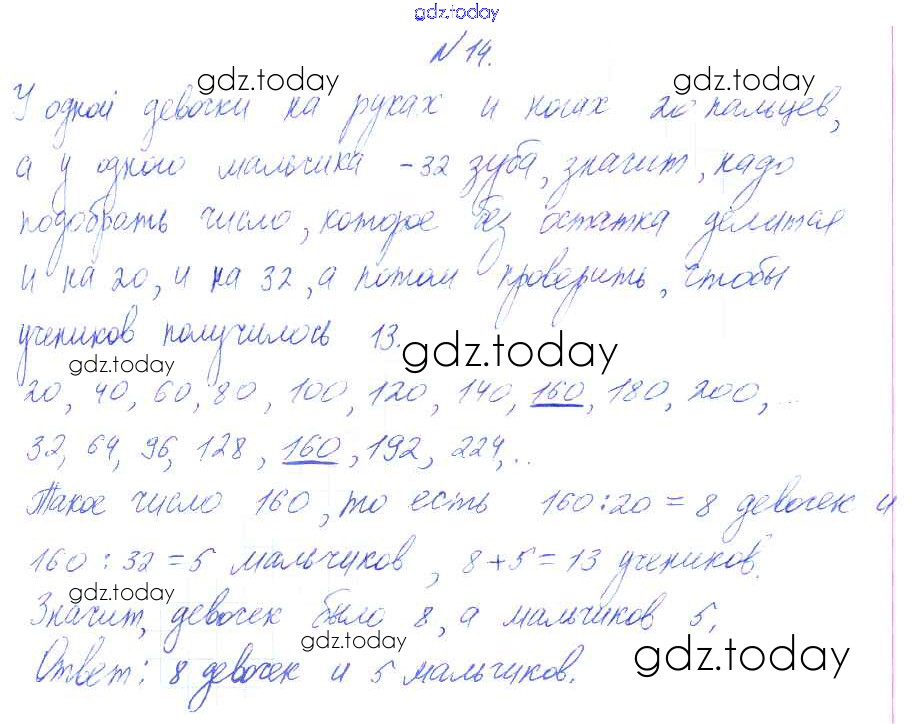 gdz.today
N 14.
gdz.today gdz.today
У одной девочки на руках и ногах 20 пальцев,
а у одного мальчика - 32 зуба, значит, надо
подобрать число, которое без остатка делится
и на 20, и на 32, а потом проверить, чтобы
учеников получилось 13.
gdz.today gdz.today
20, 40, 60, 80, 100, 120, 140, 160, 180, 200, ...
32, 64, 96, 128, 160, 192, 224, ..
Такое число 160, то есть 160:20 = 8 девочек и
160 : 32 = 5 мальчиков, 8+5=13 учеников.
gdz.today
Значит, девочек было 8, а мальчиков 5,
gdz.today gdz.today
Ответ: 8 девочек и 5 мальчиков.